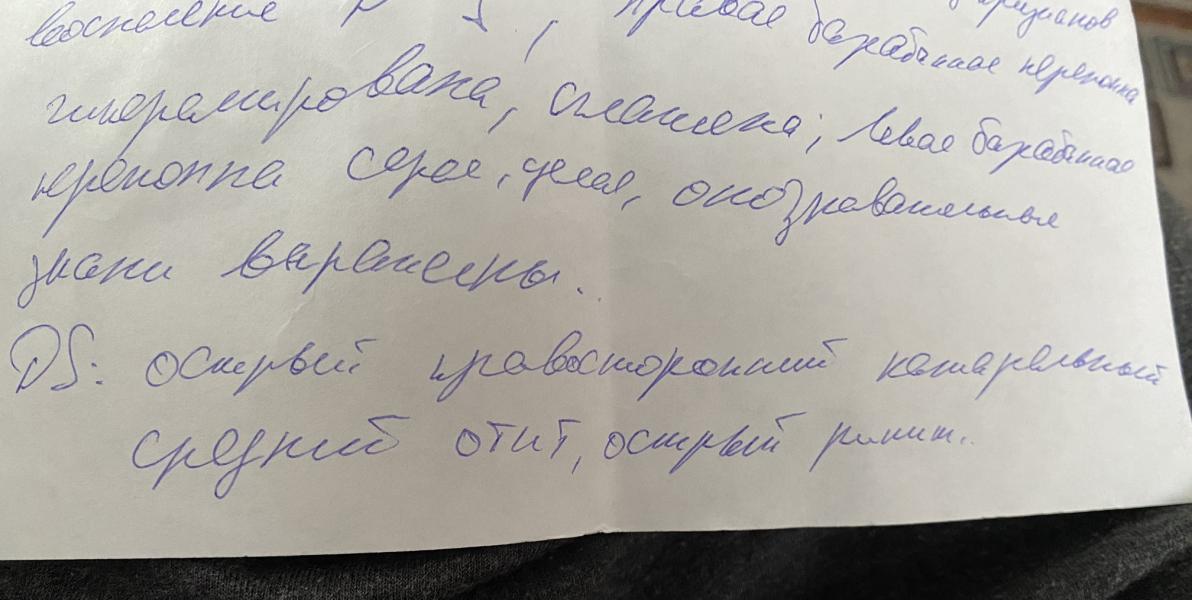 воспаление
правая барабанная перепонка
гиперемирована, сглажена; левая барабанная
перепонка серая, целая, опознавательные
знаки выражены.
DS: острый правосторонний катаральный
средний отит, острый ринит.